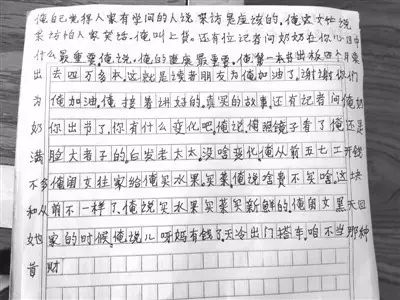 俺自己觉得人家有学问的人说采访是应该的。俺这文化说
采访怕人家笑话。俺叫上货。还有位记者问奶奶在你心目中
什么最重要。俺说。俺的健康最重要。俺第一本书出板四个月卖
出去四万多本。这就是读者朋友为俺加油了。谢谢你们
为俺加油。俺接着讲好的。真实的故事。还有记者问俺奶
奶你出书了。你有什么变化吧。俺说。俺照镜子看了俺还是
满脸大者子的白发老太太。没啥变化。俺从前五七工开钱
不多俺闺女往家给俺买水果。买菜。俺说啥费不买啥。这块
和从前不一样了。俺说买水果买菜买新鲜的。俺闺女黑天回
她家的时候。俺说儿呀妈有钱了。天冷出门搭车。咱不当那种
守财